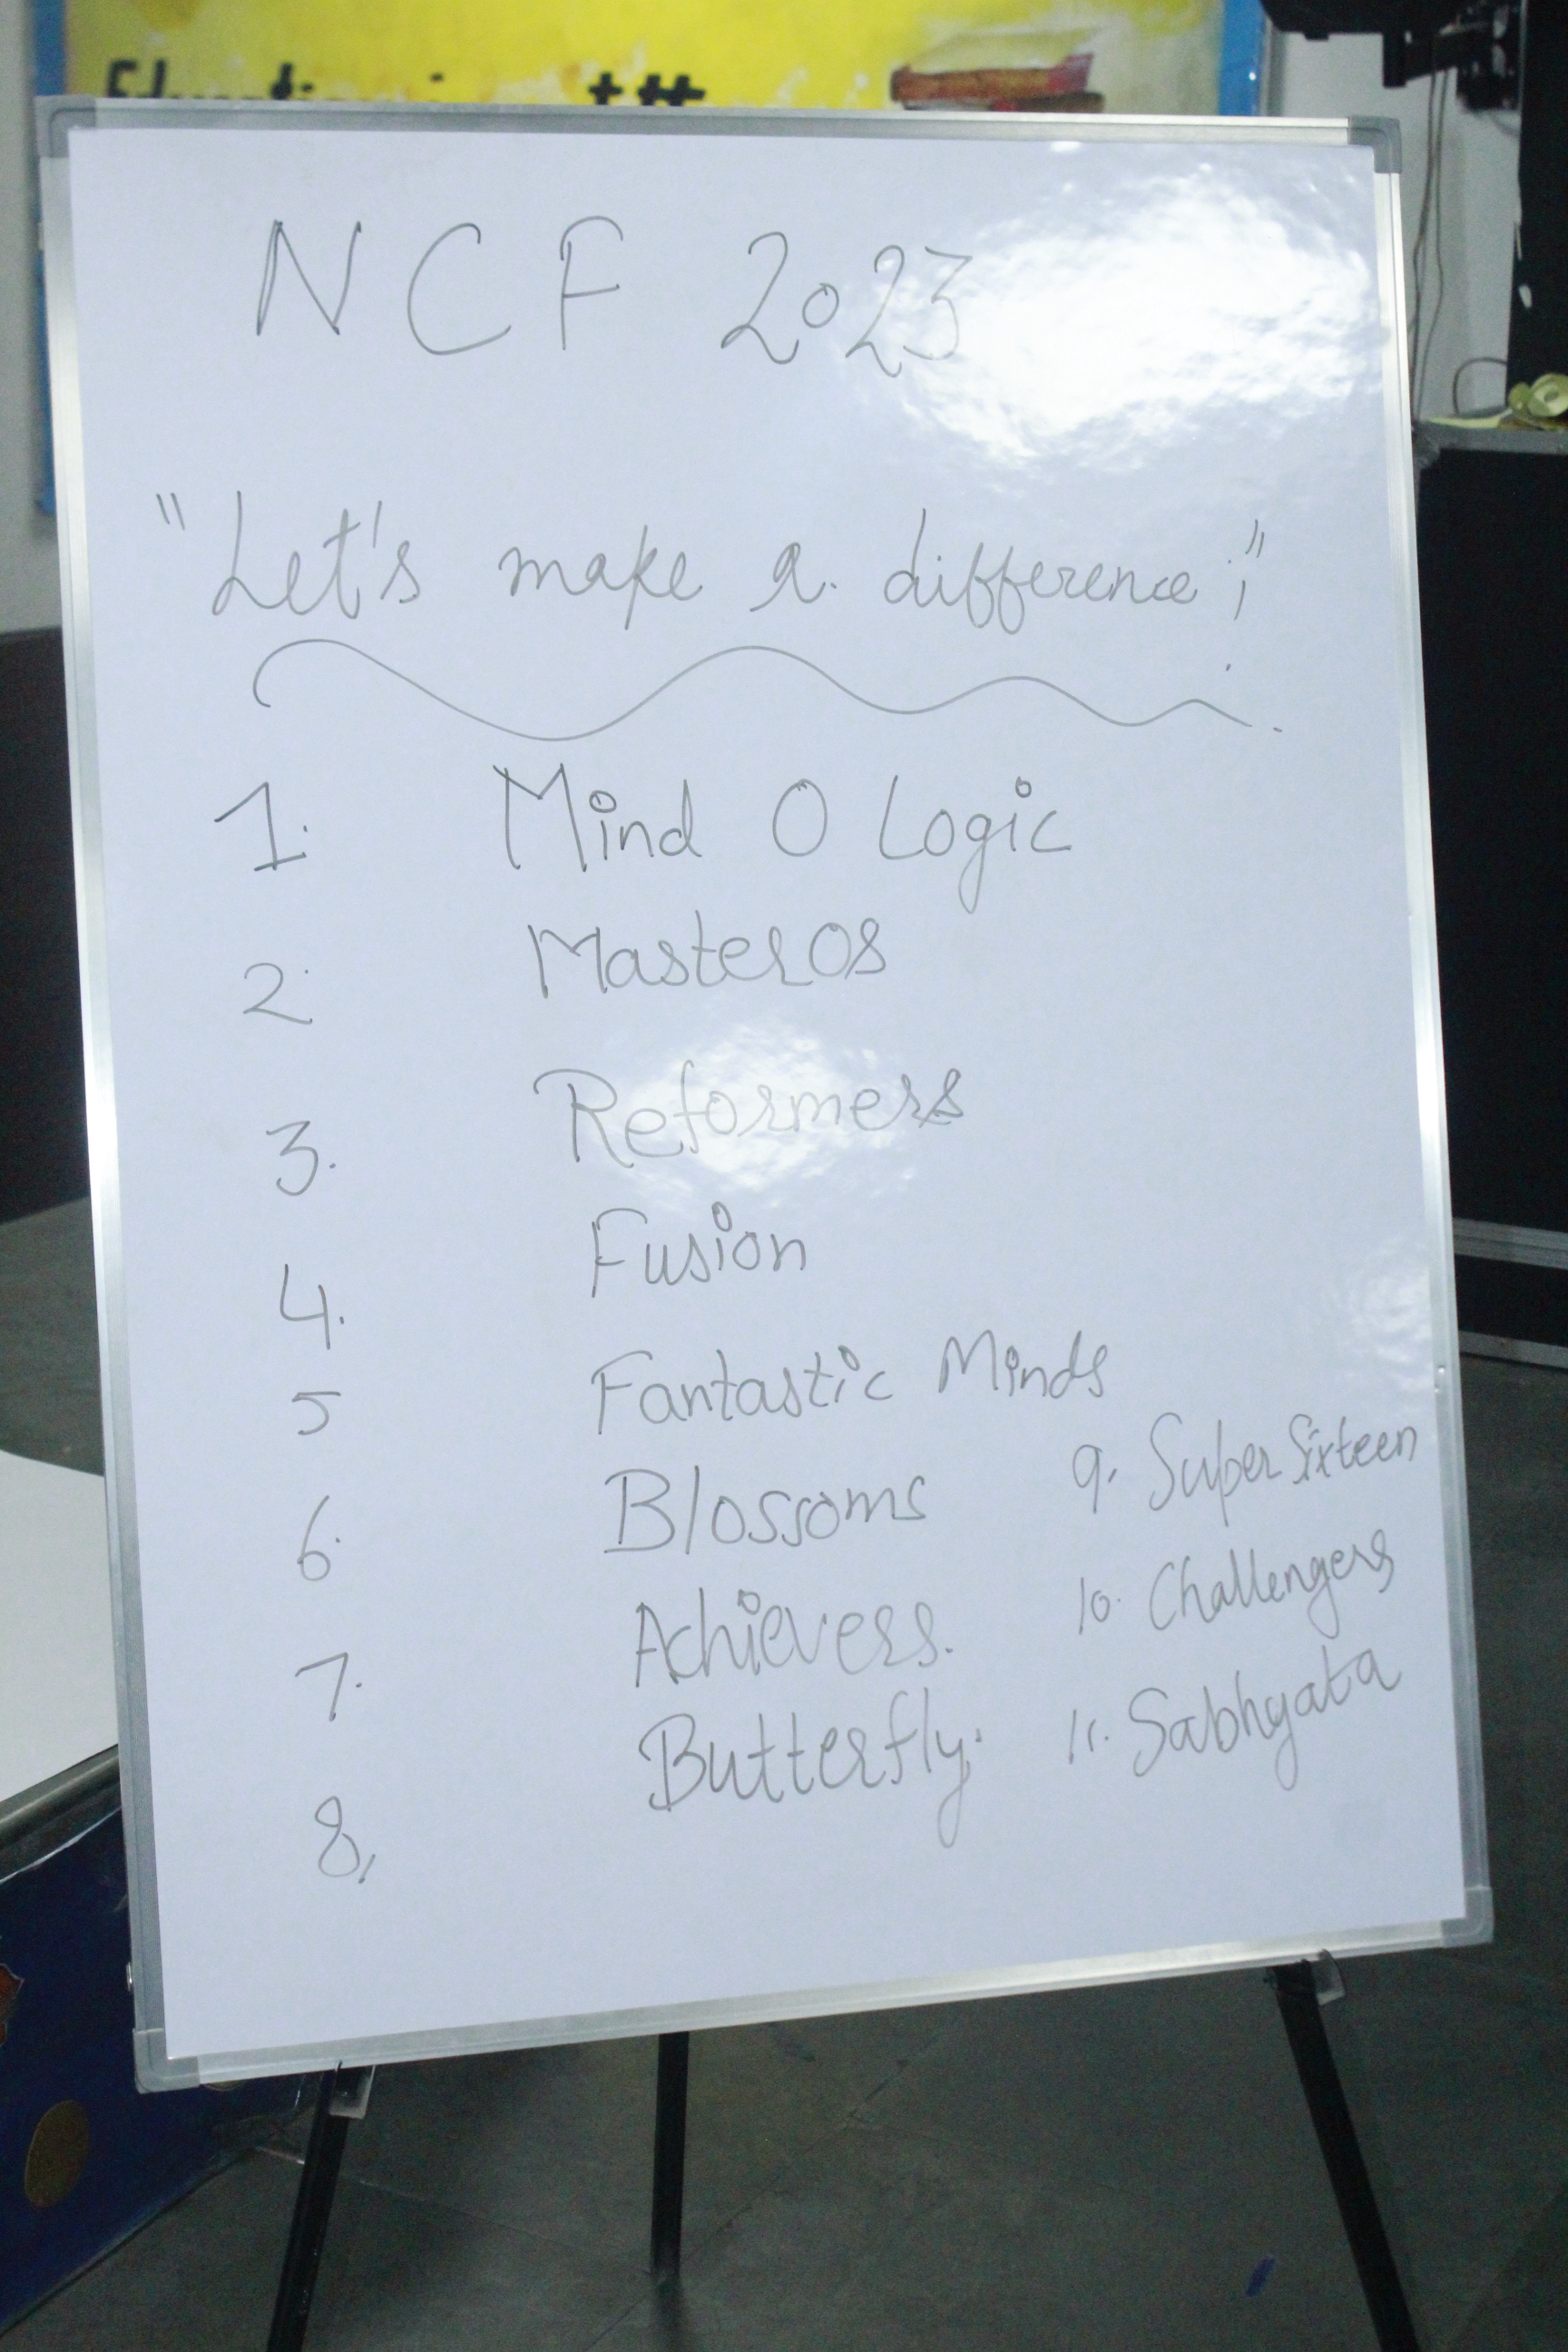 NCF 2023
"Let's make a difference;"
1. Mind O Logic
2. Masteros
3. Reformers
4. Fusion
5 Fantastic Minds
6. Blossoms
7. Achievers.
8. Butterfly.
9. Super Sixteen
10. Challengers
11. Sabhyata